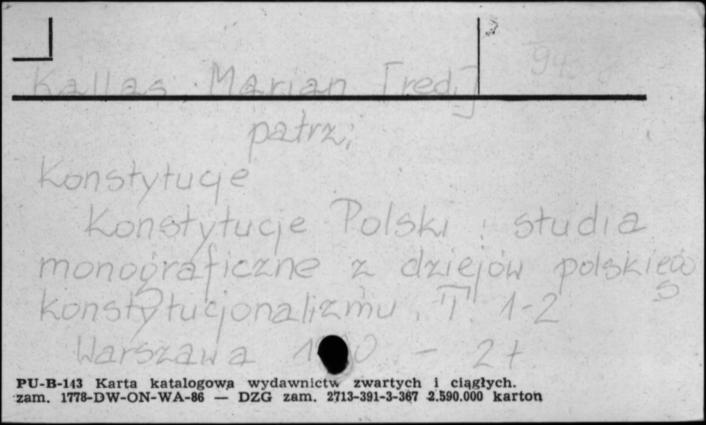 Kallas, Marian [red.]
patrz:
Konstytucje
Konstytucje Polski : studia
monograficzne z dziejów polskiego
konstytucjonalizmu. T. 1-2
Warszawa - 2 t
PU-B-143 Karta katalogowa wydawnictw zwartych i ciągłych.
zam. 1778-DW-ON-WA-86 — DZG zam. 2713-391-3-367 2.590.000 karton